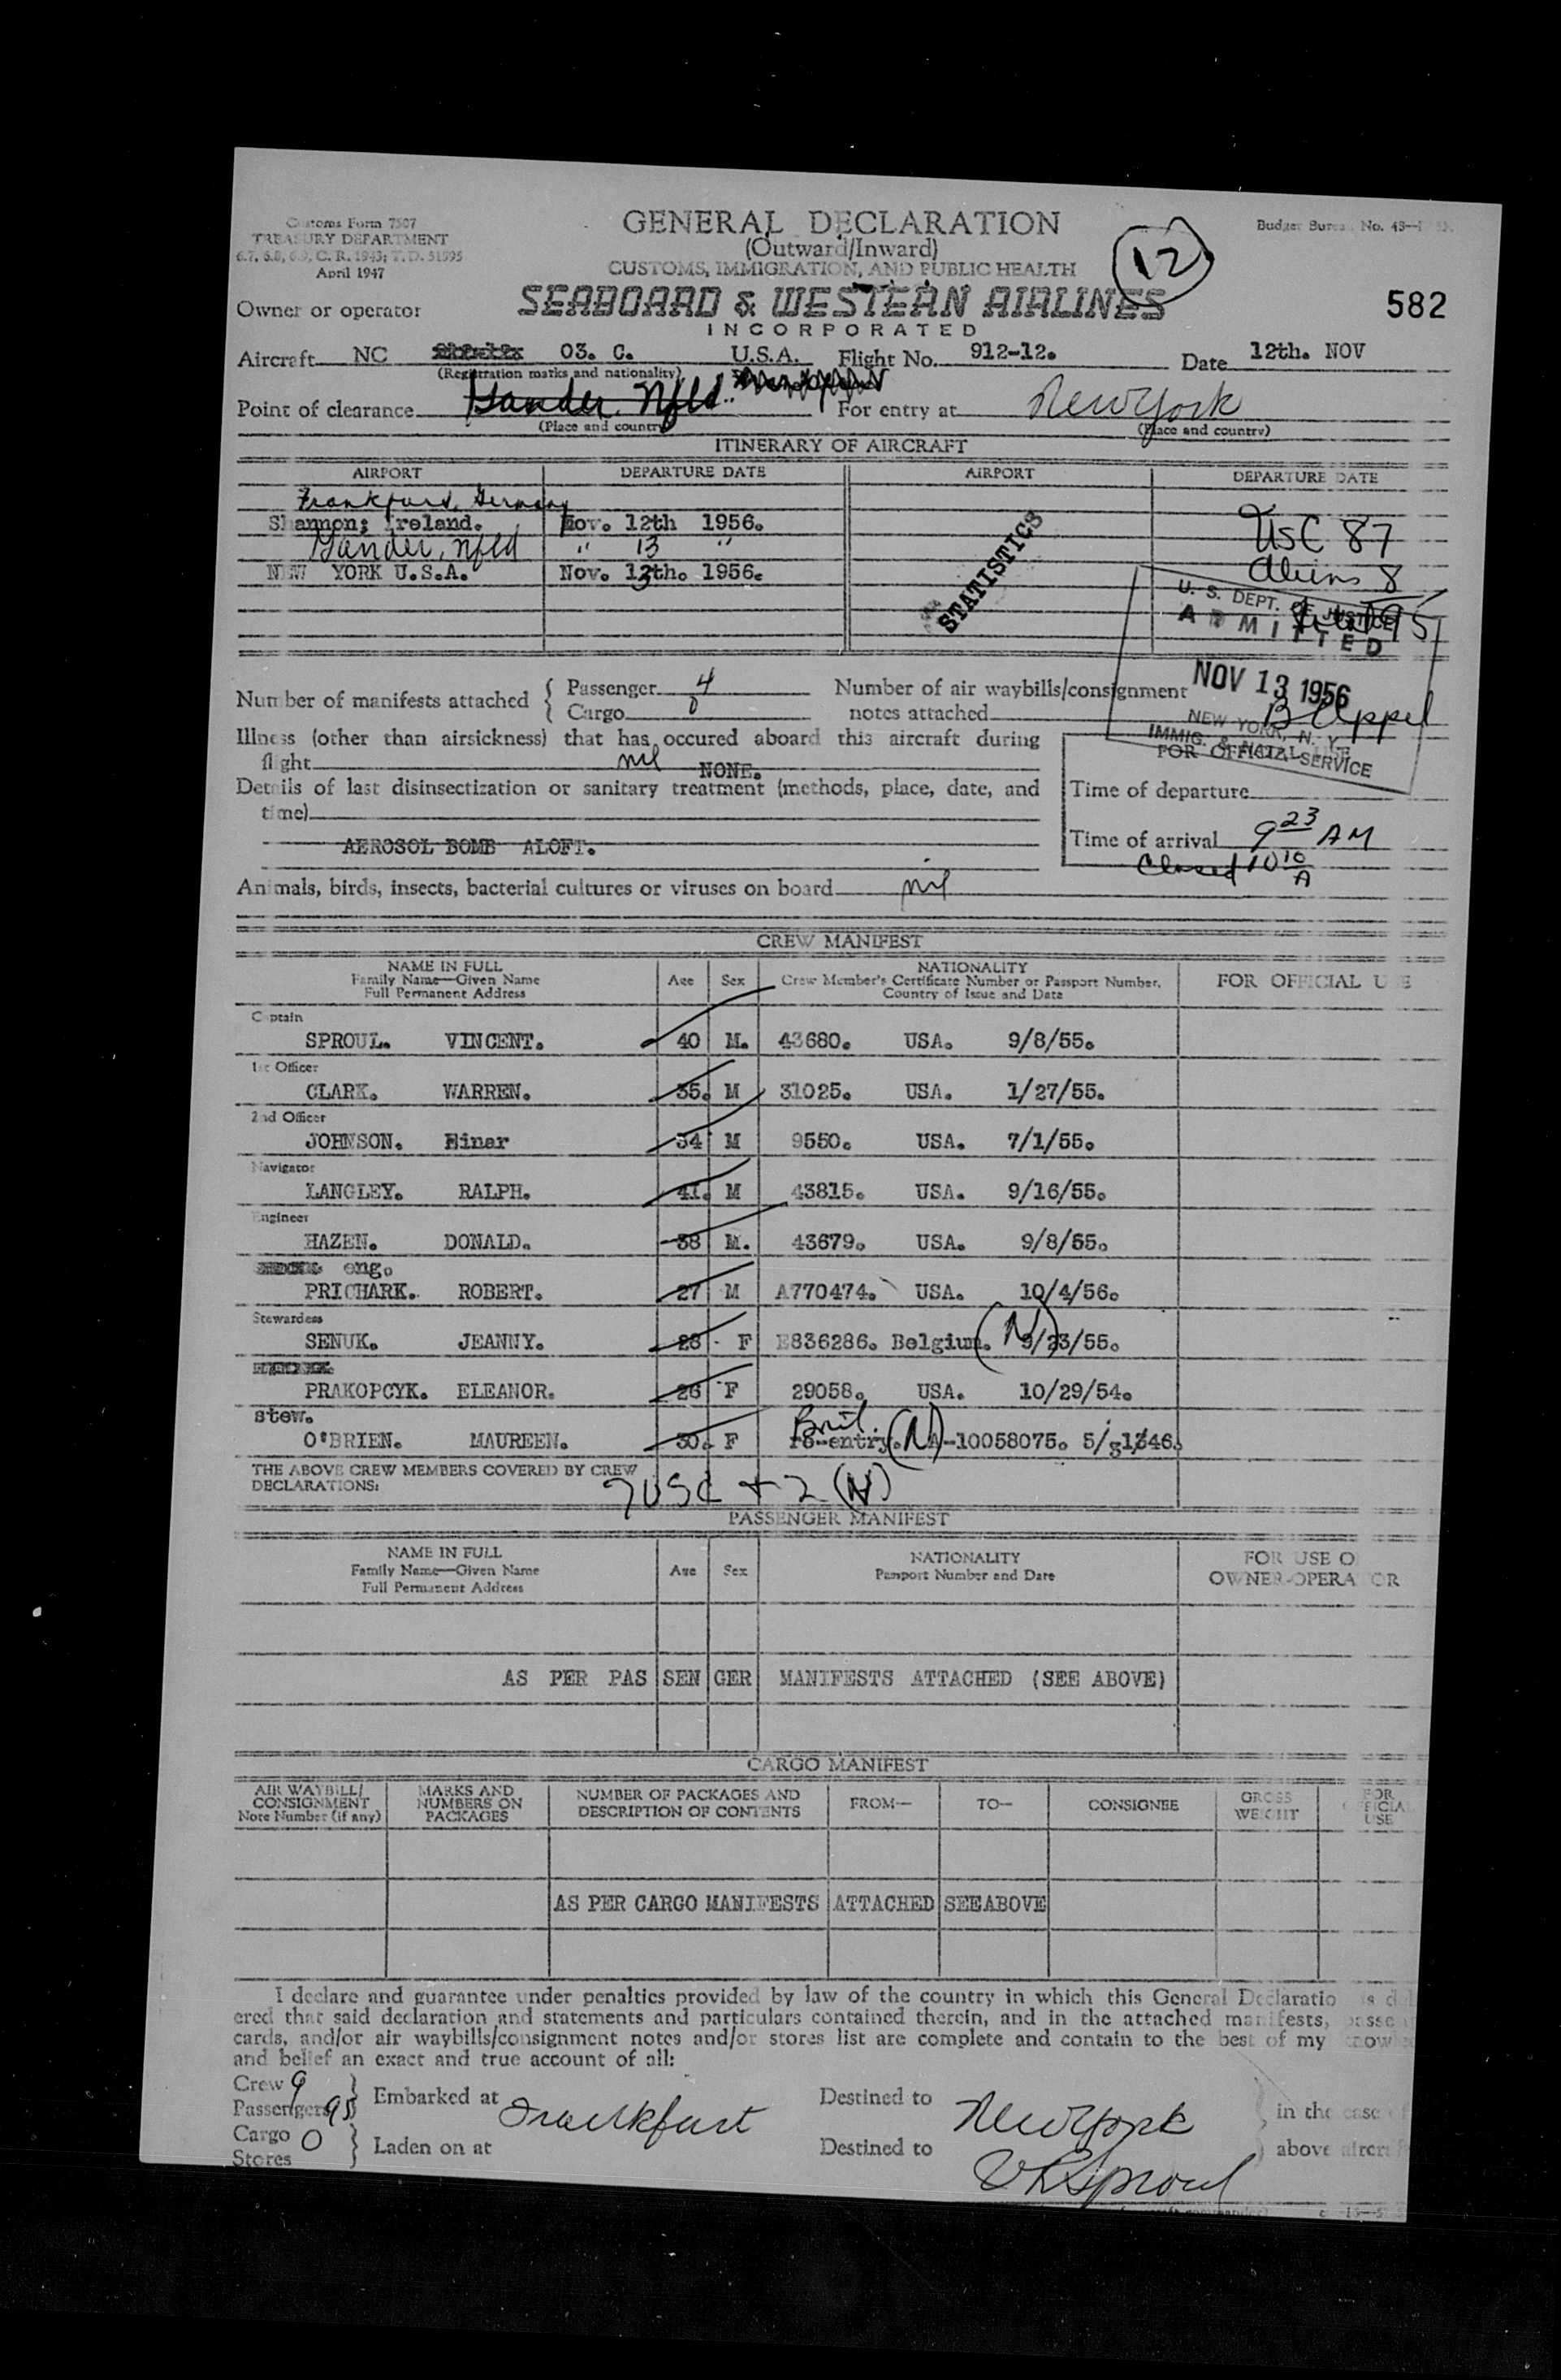 Customs Form 7507
TREASURY DEPARTMENT
6.7, 6.8, 6.9, C. R. 1943; T. D. 51595
April 1947
GENERAL DECLARATION
(Outward/Inward)
CUSTOMS, IMMIGRATION, AND PUBLIC HEALTH
12
Budget Bureau No. 48-
Owner or operator
SEABOARD & WESTERN AIRLINES
INCORPORATED
582
Aircraft NC 03. C. U.S.A. Flight No. 912-12. Date 12th. NOV
(Registration marks and nationality)
Point of clearance Gander, Nfld. For entry at New York
(Place and country) (Place and country)
ITINERARY OF AIRCRAFT
AIRPORT DEPARTURE DATE AIRPORT DEPARTURE DATE
Frankfurt, Germany
Shannon; Ireland. Nov. 12th 1956.
Gander, Nfld " 13 "
NEW YORK U.S.A. Nov. 13th. 1956.
USC 87
Aliens 8
95
STATISTICS
U. S. DEPT. OF JUSTICE
ADMITTED
NOV 13 1956
B Appel
NEW YORK, N. Y.
IMMIG. & NATZ. SERVICE
Number of manifests attached { Passenger 4
Cargo 0
Number of air waybills/consignment
notes attached
Illness (other than airsickness) that has occured aboard this aircraft during
flight nil NONE.
FOR OFFICIAL USE
Details of last disinsectization or sanitary treatment (methods, place, date, and
time)
AEROSOL BOMB ALOFT.
Time of departure
Time of arrival 9 23 AM
Closed 10 10 A
Animals, birds, insects, bacterial cultures or viruses on board nil
CREW MANIFEST
NAME IN FULL
Family Name—Given Name
Full Permanent Address
Age Sex
NATIONALITY
Crew Member's Certificate Number or Passport Number,
Country of Issue and Date
FOR OFFICIAL USE
Captain
SPROUL. VINCENT. 40 M. 43680. USA. 9/8/55.
1st Officer
CLARK. WARREN. 35. M 31025. USA. 1/27/55.
2nd Officer
JOHNSON. Einar 34 M 9550. USA. 7/1/55.
Navigator
LANGLEY. RALPH. 41. M 43815. USA. 9/16/55.
Engineer
HAZEN. DONALD. 38 M. 43679. USA. 9/8/55.
eng.
PRICHARK. ROBERT. 27 M A770474. USA. 10/4/56.
Stewardess
SENUK. JEANNY. 28 F E836286. Belgium. (N) 9/23/55.
PRAKOPCYK. ELEANOR. 26 F 29058. USA. 10/29/54.
stew.
O'BRIEN. MAUREEN. 30. F Brit. re-entry. (N) A-10058075.
THE ABOVE CREW MEMBERS COVERED BY CREW
DECLARATIONS:
7 USC + 2 (N)
PASSENGER MANIFEST
NAME IN FULL
Family Name—Given Name
Full Permanent Address
Age Sex
NATIONALITY
Passport Number and Date
FOR USE O
OWNER-OPERATOR
AS PER PAS SEN GER MANIFESTS ATTACHED (SEE ABOVE)
CARGO MANIFEST
AIR WAYBILL/
CONSIGNMENT
Note Number (if any)
MARKS AND
NUMBERS ON
PACKAGES
NUMBER OF PACKAGES AND
DESCRIPTION OF CONTENTS
FROM—
TO—
CONSIGNEE
GROSS
WEIGHT
FOR
OFFICIAL
USE
AS PER CARGO MANIFESTS ATTACHED SEE ABOVE
I declare and guarantee under penalties provided by law of the country in which this General Declaratio is del
ered that said declaration and statements and particulars contained therein, and in the attached manifests, passen
cards, and/or air waybills/consignment notes and/or stores list are complete and contain to the best of my knowle
and belief an exact and true account of all:
Crew 9
Passengers 95
Embarked at Frankfurt
Destined to New York
in the case
Cargo 0
Stores
Laden on at
Destined to
above aircr
V R Sproul